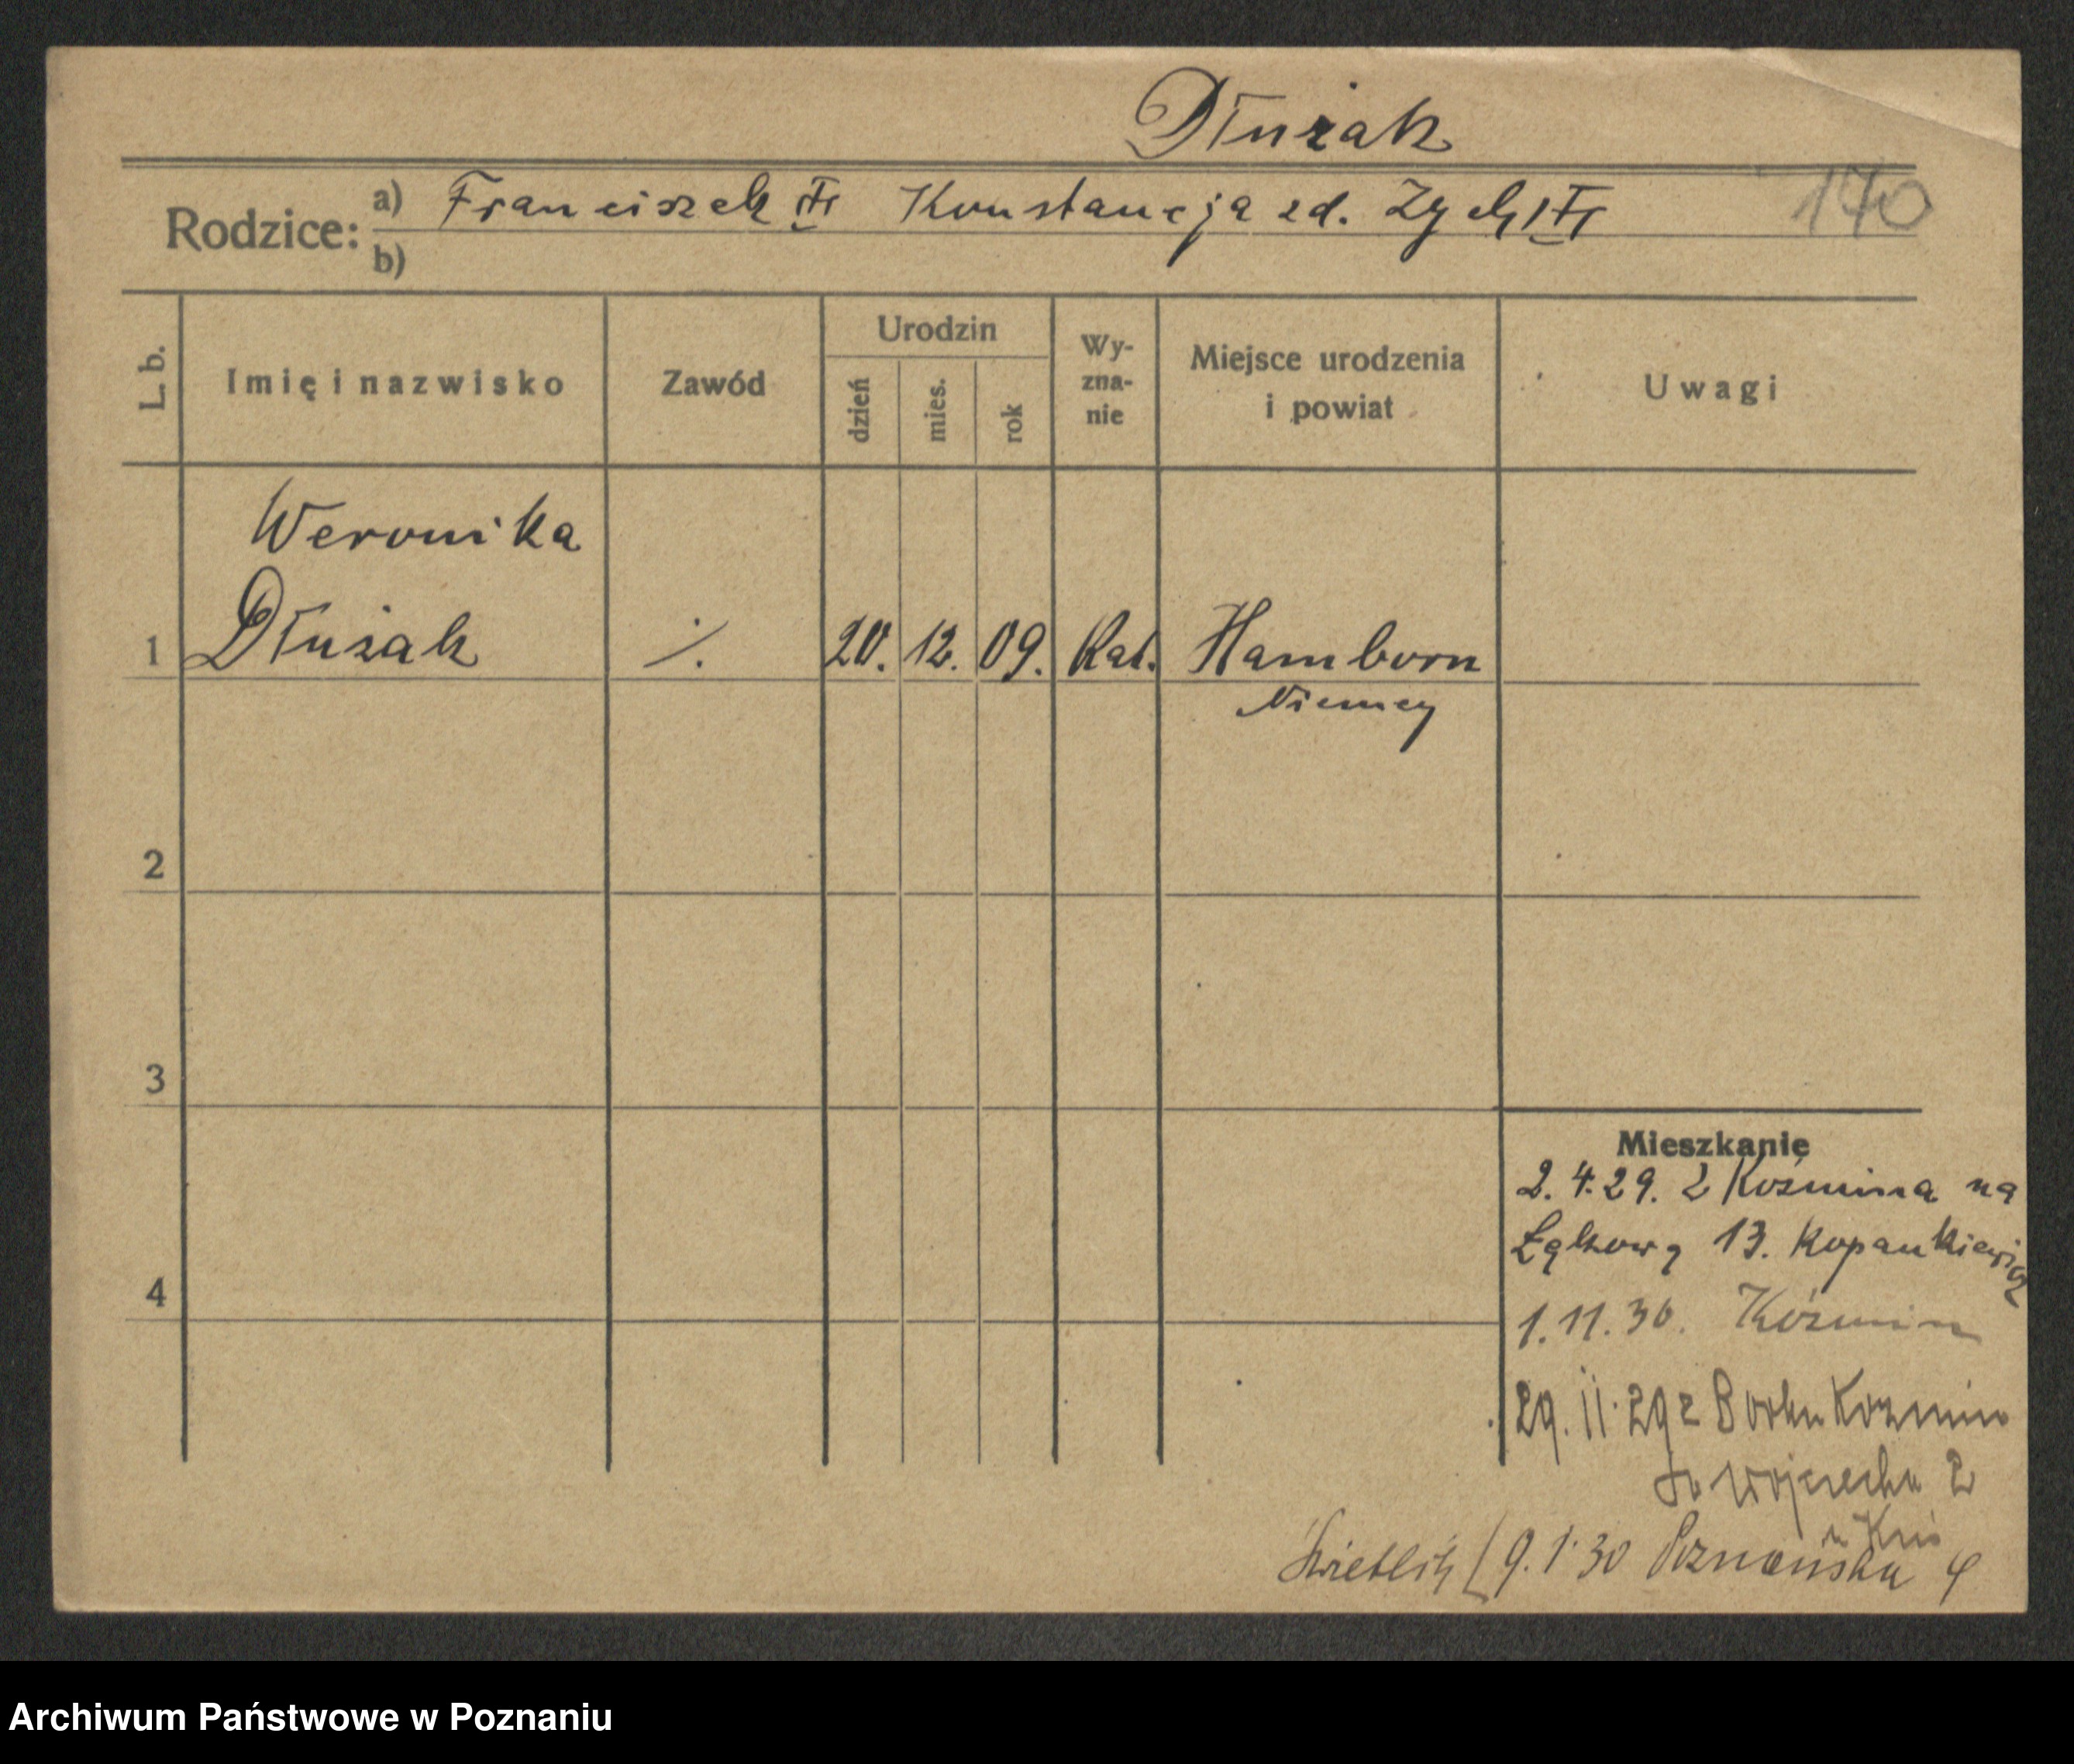 Dłużak
Rodzice: a) Franciszek Konstancja zd. Zych 170
b)
L. b. Imię i nazwisko Zawód Urodzin dzień mies. rok Wyznanie Miejsce urodzenia i powiat Uwagi
Weronika
1 Dłużak ./. 20. 12. 09. Kat. Hamborn
Niemcy
2
3
Mieszkanie
2. 4. 29. z Koźmina na
Łąkową 13. Kopankiewicz
4
1. 11. 30. Koźmin
29. 11. 29 z Borku Kozmin
Wojciecha 2
u
9. 1. 30 Poznańska
Archiwum Państwowe w Poznaniu